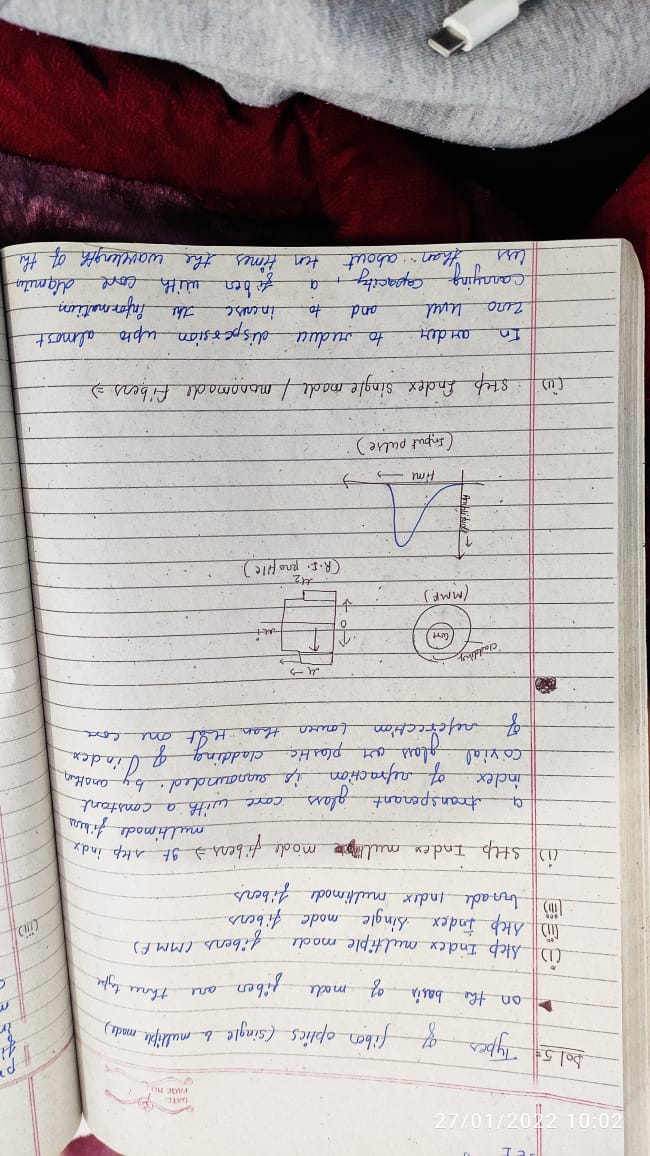 DATE:
PAGE NO.:
Sol 5 = Types of fiber optics (single & multiple mode)
on the basis of mode fiber are three type
(i) Step Index multiple mode fibers (MMF)
(ii) Step Index single mode fibers
(iii) Grade Index multimode fibers
(i) Step Index multiple mode fibers ⇒ It step index
multimode fibers
a transperant glass core with a constant
index of refraction is surrounded by another
coxial glass or plastic cladding of index
of refrection lower than that one core
cladding
core
(MMF)
μ →
0
μ1
μ2
(R.I. profile)
Amplitude
time →
(Input pulse)
(ii) Step Index single mode / monomode fibers ⇒
In order to reduce dispersion upto almost
zero level and to incrase the information
carrying capacity, a fiber with core diamite
less than about ten times the wavelength of the
(iii)
27/01/2022 10:02